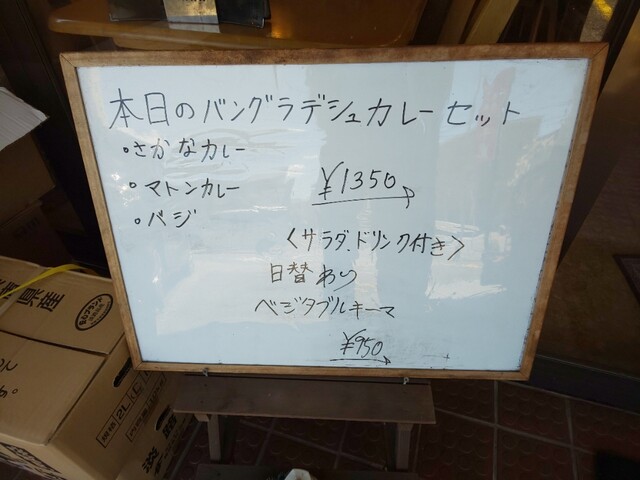 本日のバングラデシュカレーセット
・さかなカレー
・マトンカレー
・バジ
¥1350
〈サラダ、ドリンク付き〉
日替わり
ベジタブルキーマ
¥950
県産
2L